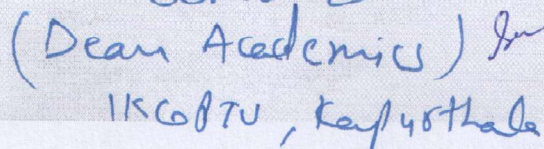 (Dean Academics)
IKGPTU, Kapurthala